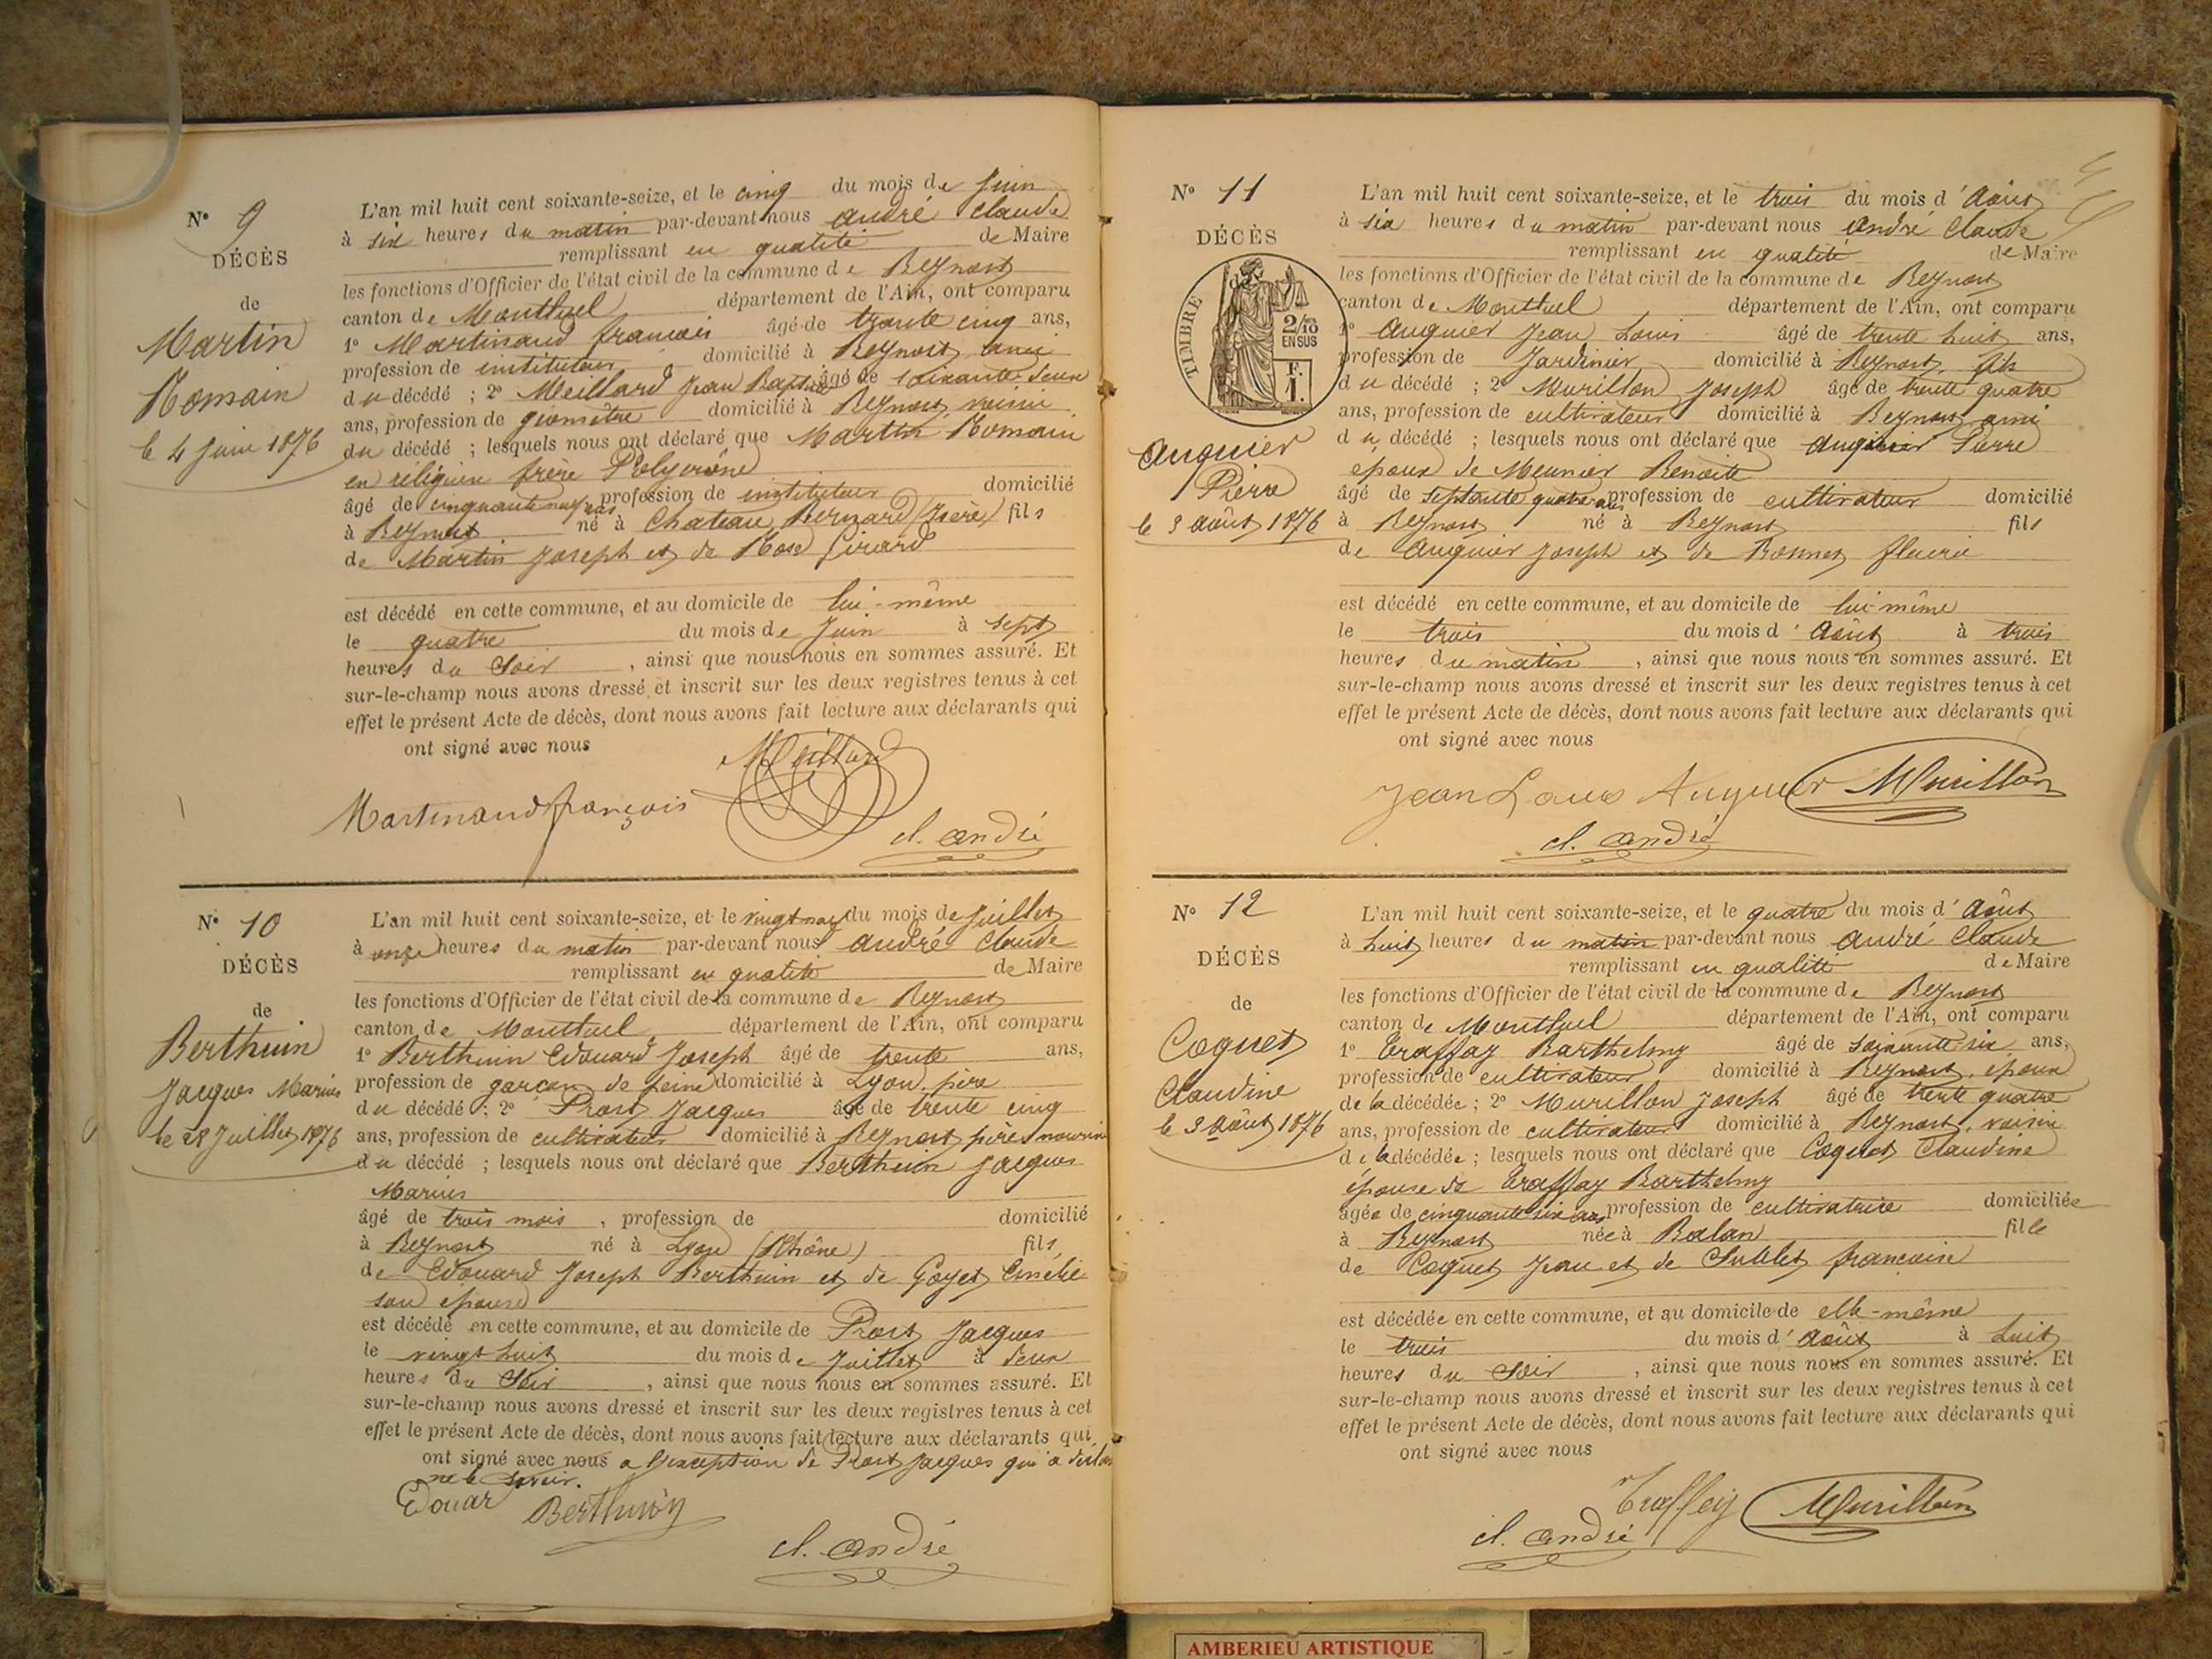 N° 9
DÉCÈS
de
Martin
Romain
le 4 Juin 1876
L'an mil huit cent soixante-seize, et le cinq du mois de Juin
à six heures du matin par-devant nous André Claude
remplissant en qualité de Maire
les fonctions d'Officier de l'état civil de la commune de Beynost
canton de Montluel département de l'Ain, ont comparu
1° Martinand francois âgé de trente cinq ans,
profession de instituteur domicilié à Beynost, ami
du décédé ; 2° Meillard Jean Baptiste âgé de soixante deux
ans, profession de géomètre domicilié à Beynost, voisin
du décédé ; lesquels nous ont déclaré que Martin Romain
en réligieux frère
âgé de cinquante neuf ans profession de instituteur domicilié
à Beynost né à Chateau Bernard (Isère) fils
de Martin Joseph et de Rose Girard
est décédé en cette commune, et au domicile de lui-même
le quatre du mois de Juin à sept
heures du Soir , ainsi que nous nous en sommes assuré. Et
sur-le-champ nous avons dressé et inscrit sur les deux registres tenus à cet
effet le présent Acte de décès, dont nous avons fait lecture aux déclarants qui
ont signé avec nous
Meillard
Martinand françois
cl. andré
N° 10
DÉCÈS
de
Berthuin
Jacques Marius
le 28 Juillet 1876
L'an mil huit cent soixante-seize, et le vingt neuf du mois de Juillet
à onze heures du matin par-devant nous André Claude
remplissant en qualité de Maire
les fonctions d'Officier de l'état civil de la commune de Beynost
canton de Montluel département de l'Ain, ont comparu
1° Berthuin Edouard Joseph âgé de trente ans,
profession de garçon de peine domicilié à Lyon, père
du décédé ; 2° Prost Jacques âgé de trente cinq
ans, profession de cultivateur domicilié à Beynost, père nourricier
du décédé ; lesquels nous ont déclaré que Berthuin Jacques
Marius
âgé de trois mois , profession de domicilié
à Beynost né à Lyon (Rhône) fils
de Edouard Joseph Berthuin et de Goyet
son épouse
est décédé en cette commune, et au domicile de Prost Jacques
le vingt huit du mois de Juillet à deux
heures du Soir , ainsi que nous nous en sommes assuré. Et
sur-le-champ nous avons dressé et inscrit sur les deux registres tenus à cet
effet le présent Acte de décès, dont nous avons fait lecture aux déclarants qui
ont signé avec nous a l'exception de Prost Jacques qui a
ne le savoir.
Edouar Berthuion
cl. andré
N° 11
DÉCÈS
de
TIMBRE
2/10
EN SUS
F.
1.
Auguier
Pierre
le 3 août 1876
L'an mil huit cent soixante-seize, et le trois du mois d'Août
à six heures du matin par-devant nous André Claude
remplissant en qualité de Maire
les fonctions d'Officier de l'état civil de la commune de Beynost
canton de Montluel département de l'Ain, ont comparu
1° Auguier Jean Louis âgé de trente huit ans,
profession de Jardinier domicilié à Beynost, fils
du décédé ; 2° Murillon Joseph âgé de trente quatre
ans, profession de cultivateur domicilié à Beynost, ami
du décédé ; lesquels nous ont déclaré que Auguier Pierre
époux de Meunier Benoite
âgé de septante quatre ans profession de cultivateur domicilié
à Beynost né à Beynost fils
de Auguier Joseph et de Bonnet
est décédé en cette commune, et au domicile de lui-même
le trois du mois d'Août à trois
heures du matin , ainsi que nous nous en sommes assuré. Et
sur-le-champ nous avons dressé et inscrit sur les deux registres tenus à cet
effet le présent Acte de décès, dont nous avons fait lecture aux déclarants qui
ont signé avec nous
Jean Louis Auguier Murillon
cl. andré
N° 12
DÉCÈS
de
Coquet
Claudine
le 3 août 1876
L'an mil huit cent soixante-seize, et le quatre du mois d'Août
à huit heures du matin par-devant nous André Claude
remplissant en qualité de Maire
les fonctions d'Officier de l'état civil de la commune de Beynost
canton de Montluel département de l'Ain, ont comparu
1° Traffay Barthelmy âgé de soixante-six ans,
profession de cultivateur domicilié à Beynost, époux
de la décédée ; 2° Murillon Joseph âgé de trente quatre
ans, profession de cultivateur domicilié à Beynost, voisin
de la décédée ; lesquels nous ont déclaré que Coquet Claudine
épouse de Traffay Barthelmy
âgée de cinquante six ans profession de cultivatrice domiciliée
à Beynost née à Balan fille
de Coquet Jean et de Sublet francoise
est décédée en cette commune, et au domicile de elle-même
le trois du mois d'Août à huit
heures du Soir , ainsi que nous nous en sommes assuré. Et
sur-le-champ nous avons dressé et inscrit sur les deux registres tenus à cet
effet le présent Acte de décès, dont nous avons fait lecture aux déclarants qui
ont signé avec nous
Traffey Murillon
cl. andré
AMBERIEU ARTISTIQUE